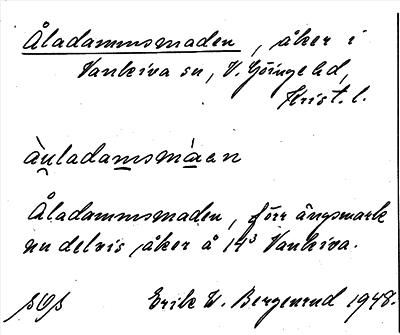 Åladammsmaden, åker i
Vankiva sn, V. Göinge hd,
Krist. l.
àu̯ladamsmáen
Åladammsmaden, förr ängsmark
nu delvis åker å 14³ Vankiva.
Erik W. Bergenrud 1948.